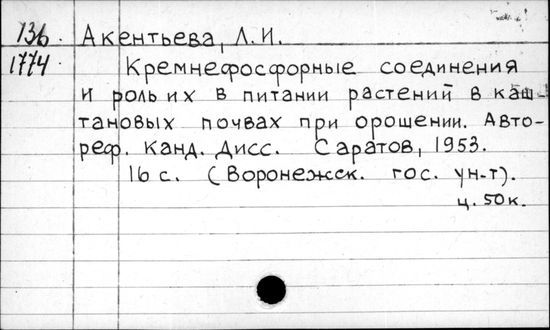 136. Акентьева, Л.И.
1774. Кремнефосфорные соединения
и роль их в питании растений в каш-
тановых почвах при орошении. Авто-
реф. канд. дисс. Саратов, 1953.
16 с. (Воронежск. гос. ун-т).
ц. 50к.